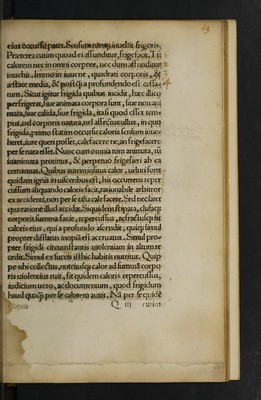 eius occursu patet. Sensum nanque inuehit frigoris.
Præterea cutim quoad ei affunditur, frigefacit, Tū
calorem nec in omni corpore, nec dum affunditur
inuehit. Immo in iuuene, quadrati corporis, &
æstate media, & postq̃ a profundendo est cessa-
tum. Sicut igitur frigida quibus incidit, hæc illico
perfrigerat, siue animata corpora sunt, siue non ani
mata, siue calida, siue frigida, ita si quod esset tem-
pus, uel corporis natura, uel affectus ullus, in quo
frigida, primo statim occursu caloris sensum inue-
heret, iure queri posset, calefacere ne, an frigefacere
per se nata esset. Nunc cum omnia tum animata, tū
inanimata protinus, & perpetuo frigefieri ab ea
cernamus. Quibus interuis calor, uelut fons
quidam ignis in uisceribus est, his occurrens reper
cussum aliquando caloris facit, rationabile arbitror
ex accidenti, non per se tale calefacere. Sed nec latet
qua ratione illud accidat. Siquidem stipata, clusaque
corporis summa facie, repercussus, ac refractus sit
caloris eius, qui a profundo ascendit, quique simul
propter difflatus inopiā est aceruatus. Simul pro-
pter frigidi circumstantis uiolentiam in altum re
cedit. Simul ex succis isthic habitis nutritur. Quip
pe ubi collectus, nutritusque calor ad summā corpo
ris uiolentius ruit, fit quidem caloris repercussus,
iudicium uero, ac documentum, quod frigidum
haud quaque per se calorem auxit. Nā per se quidē
Q iii